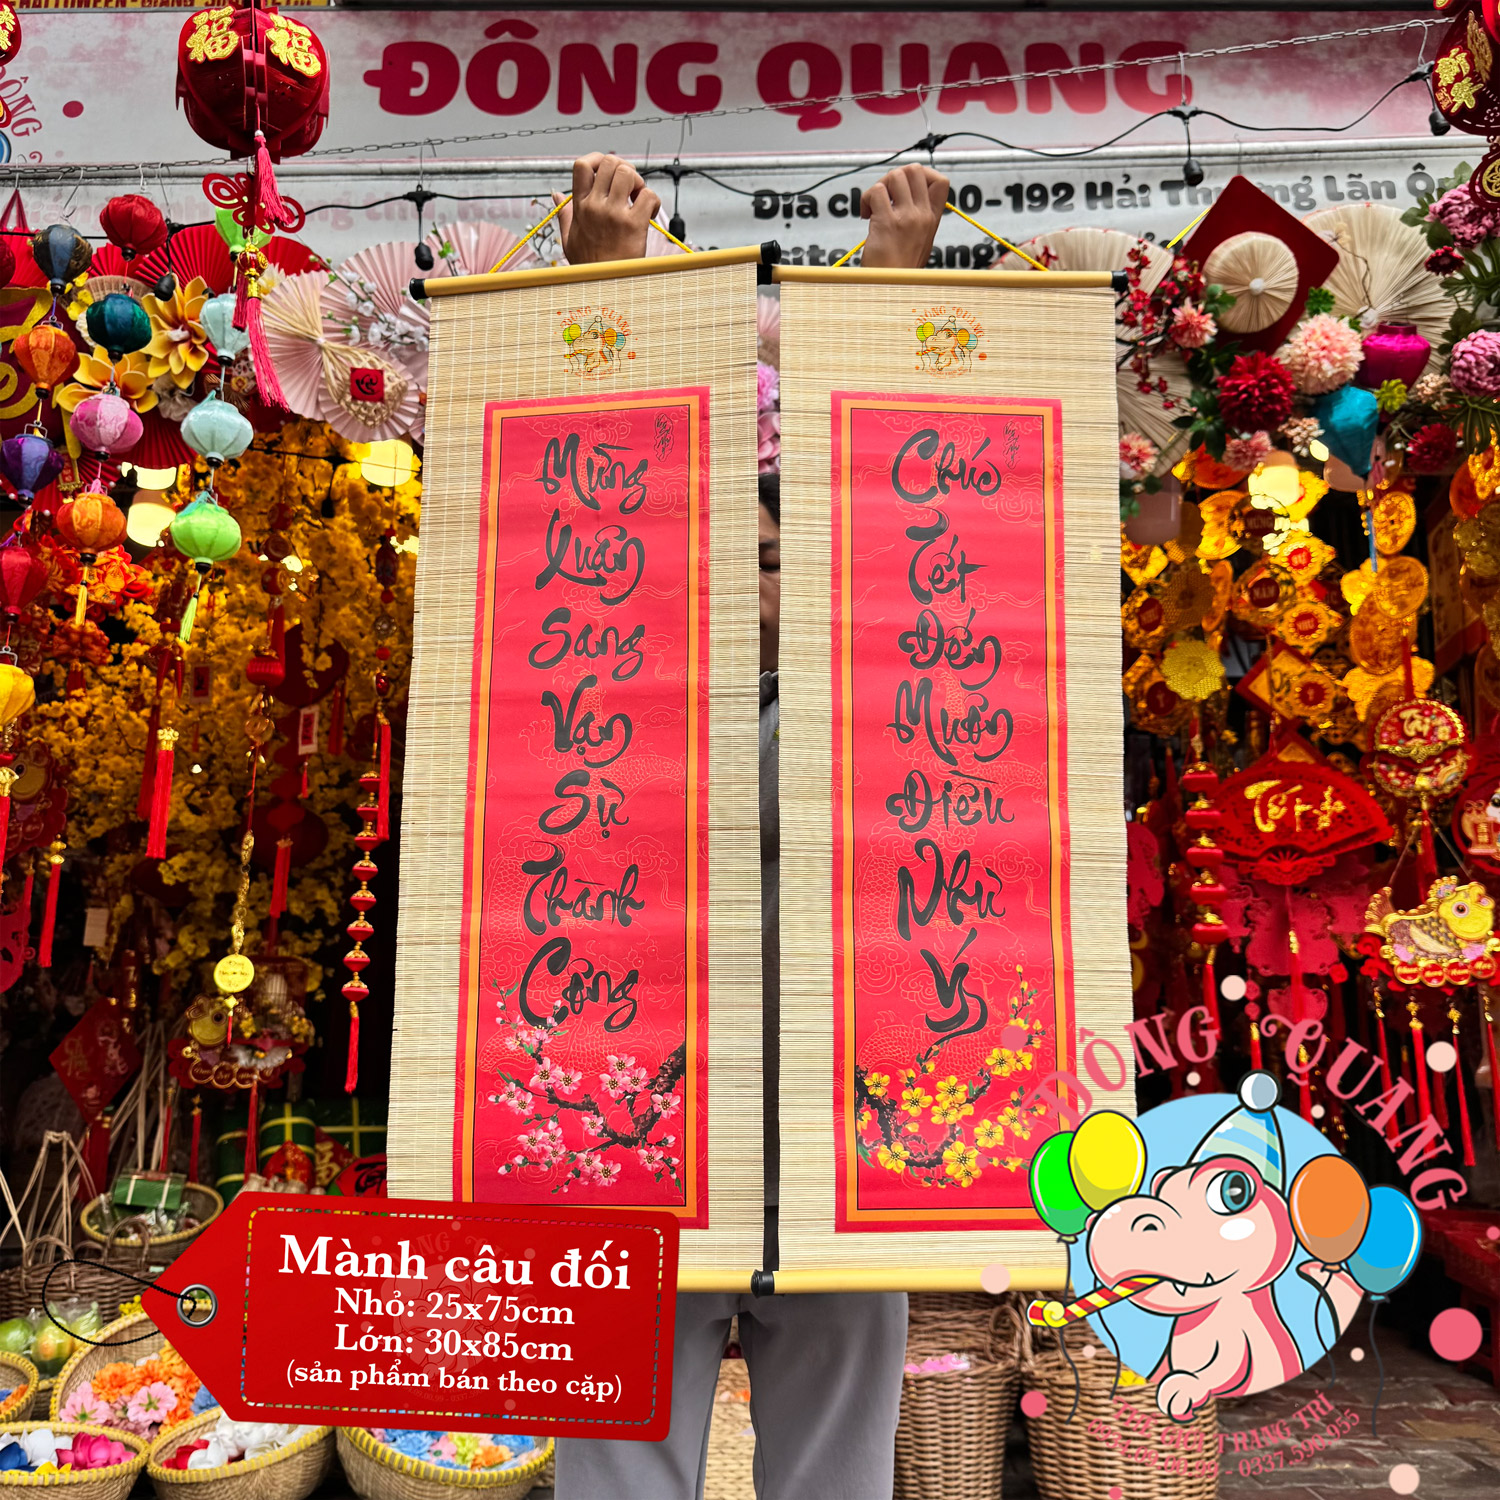 ĐÔNG QUANG
Hải Thượng Lãn Ông
ĐÔNG QUANG
ĐÔNG QUANG
Mừng
Xuân
Sang
Vạn
Sự
Thành
Công
Chúc
Tết
Đến
Muôn
Điều
Như
Ý
Mành câu đối
Nhỏ: 25x75cm
Lớn: 30x85cm
(sản phẩm bán theo cặp)
ĐÔNG QUANG
THẾ GIỚI TRANG TRÍ
0934.09.00.99 - 0337.590.955